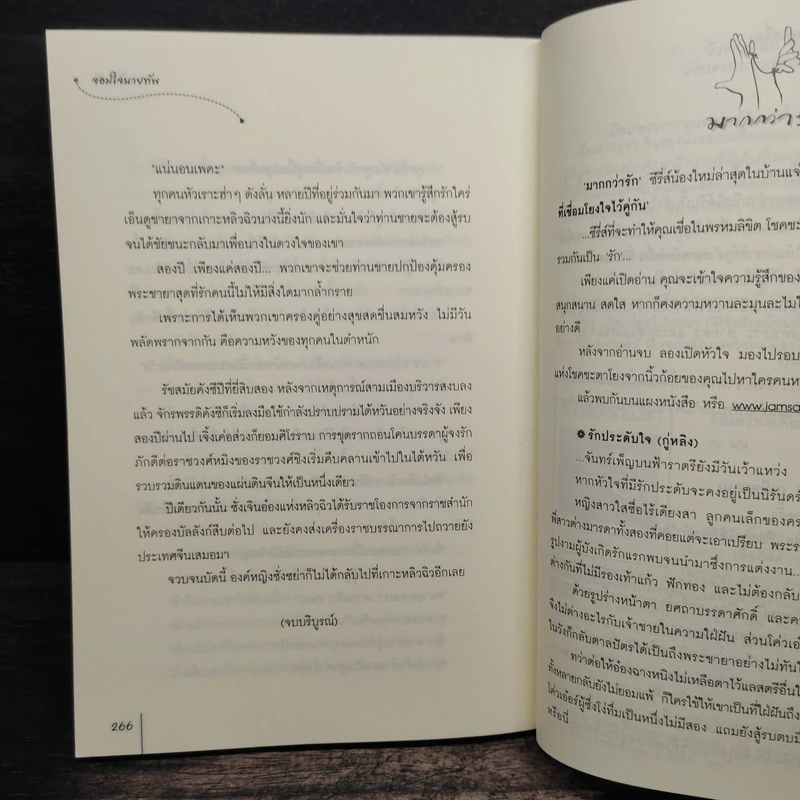 จอมใจนายทัพ
"แน่นอนเพคะ"
ทุกคนหัวเราะฮ่าๆ ดังลั่น หลายปีที่อยู่ร่วมกันมา พวกเขารู้สึกรักใคร่
เอ็นดูชายาจากเกาะหลิวฉิวนางนี้ยิ่งนัก และมั่นใจว่าท่านชายจะต้องสู้รบ
จนได้ชัยชนะกลับมาเพื่อนางในดวงใจของเขา
สองปี เพียงแค่สองปี... พวกเขาจะช่วยท่านชายปกป้องคุ้มครอง
พระชายาสุดที่รักคนนี้ไม่ให้มีสิ่งใดมากล้ำกราย
เพราะการได้เห็นพวกเขาครองคู่อย่างสุขสดชื่นสมหวัง ไม่มีวัน
พลัดพรากจากกัน คือความหวังของทุกคนในตำหนัก
รัชสมัยคังซีปีที่ยี่สิบสอง หลังจากเหตุการณ์สามเมืองบริวารสงบลง
แล้ว จักรพรรดิคังซีก็เริ่มลงมือใช้กำลังปราบปรามไต้หวันอย่างจริงจัง เพียง
สองปีผ่านไป เจิ้งเค่อส่วงก็ยอมศิโรราบ การขุดรากถอนโคนบรรดาผู้จงรัก
ภักดีต่อราชวงศ์หมิงของราชวงศ์ชิงเริ่มคืบคลานเข้าไปในไต้หวัน เพื่อ
รวบรวมดินแดนของแผ่นดินจีนให้เป็นหนึ่งเดียว
ปีเดียวกันนั้น ซั่งเจินอ๋องแห่งหลิวฉิวได้รับราชโองการจากราชสำนัก
ให้ครองบัลลังก์สืบต่อไป และยังคงส่งเครื่องราชบรรณาการไปถวายยัง
ประเทศจีนเสมอมา
จวบจนบัดนี้ องค์หญิงซั่งซย่าก็ไม่ได้กลับไปที่เกาะหลิวฉิวอีกเลย
(จบบริบูรณ์)
266
มากกว่า
'มากกว่ารัก' ซีรี่ส์น้องใหม่ล่าสุดในบ้านแจ่
ที่เชื่อมโยงใจไว้คู่กัน'
...ซีรี่ส์ที่จะทำให้คุณเชื่อในพรหมลิขิต โชคชะ
รวมกันเป็น 'รัก'...
เพียงแค่เปิดอ่าน คุณจะเข้าใจความรู้สึกของ
สนุกสนาน สดใส หากก็คงความหวานละมุนละไม
อย่างดี
หลังจากอ่านจบ ลองเปิดหัวใจ มองไปรอบ
แห่งโชคชะตาโยงจากนิ้วก้อยของคุณไปหาใครคน
แล้วพบกันบนแผงหนังสือ หรือ www.jamsa
รักประดับใจ (กู่หลิง)
...จันทร์เพ็ญบนฟ้าราตรียังมีวันเว้าแหว่ง
หากหัวใจที่มีรักประดับจะคงอยู่เป็นนิรันดร์
หญิงสาวใสซื่อไร้เดียงสา ลูกคนเล็กของคร
พี่สาวต่างมารดาทั้งสองที่คอยแต่จะเอาเปรียบ พระร
รูปงามผู้บังเกิดรักแรกพบจนนำมาซึ่งการแต่งงาน...
ต่างกันที่ไม่มีรองเท้าแก้ว ฟักทอง และไม่ต้องกลับ
ด้วยรูปร่างหน้าตา ยศถาบรรดาศักดิ์ และค
จึงไม่ต่างอะไรกับเจ้าชายในความใฝ่ฝัน ส่วนโค่วเอ๋
ในวังก็กลับตาลปัตรได้เป็นถึงพระชายาอย่างไม่ทัน
ทว่าต่อให้อ๋องฉางหนิงไม่เหลือตาไว้แลสตรีอื่น
ทั้งหลายกลับยังไม่ยอมแพ้ ก็ใครใช้ให้เขาเป็นที่ใฝ่ฝันถึง
โค่วเอ๋อร์ผู้ซึ่งโง่ทึ่มเป็นหนึ่งไม่มีสอง แถมยังสู้รบตบมื
หรือนี่